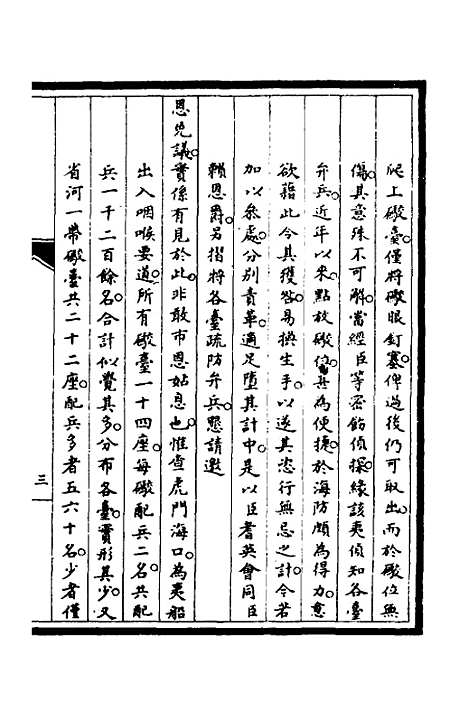 爬上礮臺。僅將礮眼釘塞。俾過後仍可取出。而於礮位無
傷。其意殊不可解。當經臣等密飭偵探。緣該夷偵知各臺
弁兵。近年以來。點放礮位。甚為便捷。於海防頗為得力。意
欲藉此令其獲咎。易換生手。以遂其恣行無忌之計。今若
加以參處。分別責革。適足墮其計中。是以臣耆英會同臣
賴恩爵。另摺將各臺疏防弁兵。懇請邀
恩免議。實係有見於此。非敢市恩姑息也。惟查虎門海口。為夷船
出入咽喉要道。所有礮臺一十四座。每礮配兵二名。共配
兵一千二百餘名。合計似覺其多。分布各臺。實形其少。又
省河一帶礮臺共二十二座。配兵多者五六十名。少者僅
三